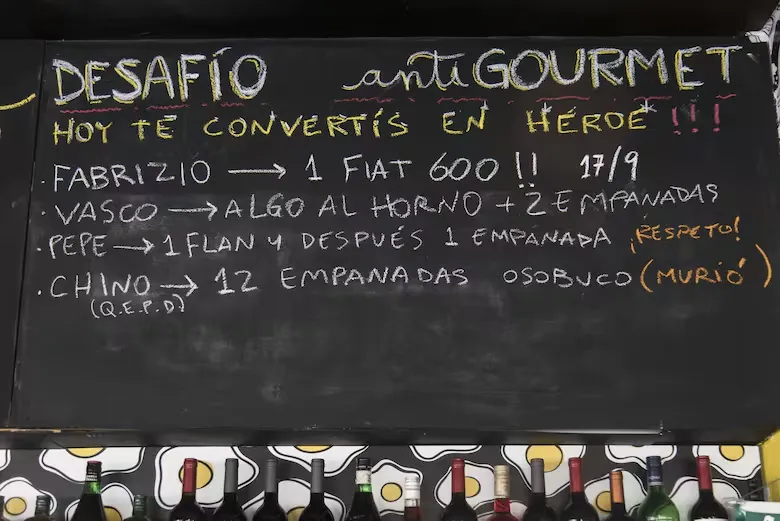 DESAFÍO antiGOURMET
HOY TE CONVERTÍS EN HÉROE!!!
· FABRIZIO → 1 FIAT 600 !! 17/9
· VASCO → ALGO AL HORNO + 2 EMPANADAS
· PEPE → 1 FLAN y DESPUÉS 1 EMPANADA ¡RESPETO!
· CHINO → 12 EMPANADAS OSOBUCO (MURIÓ)
(Q.E.P.D)